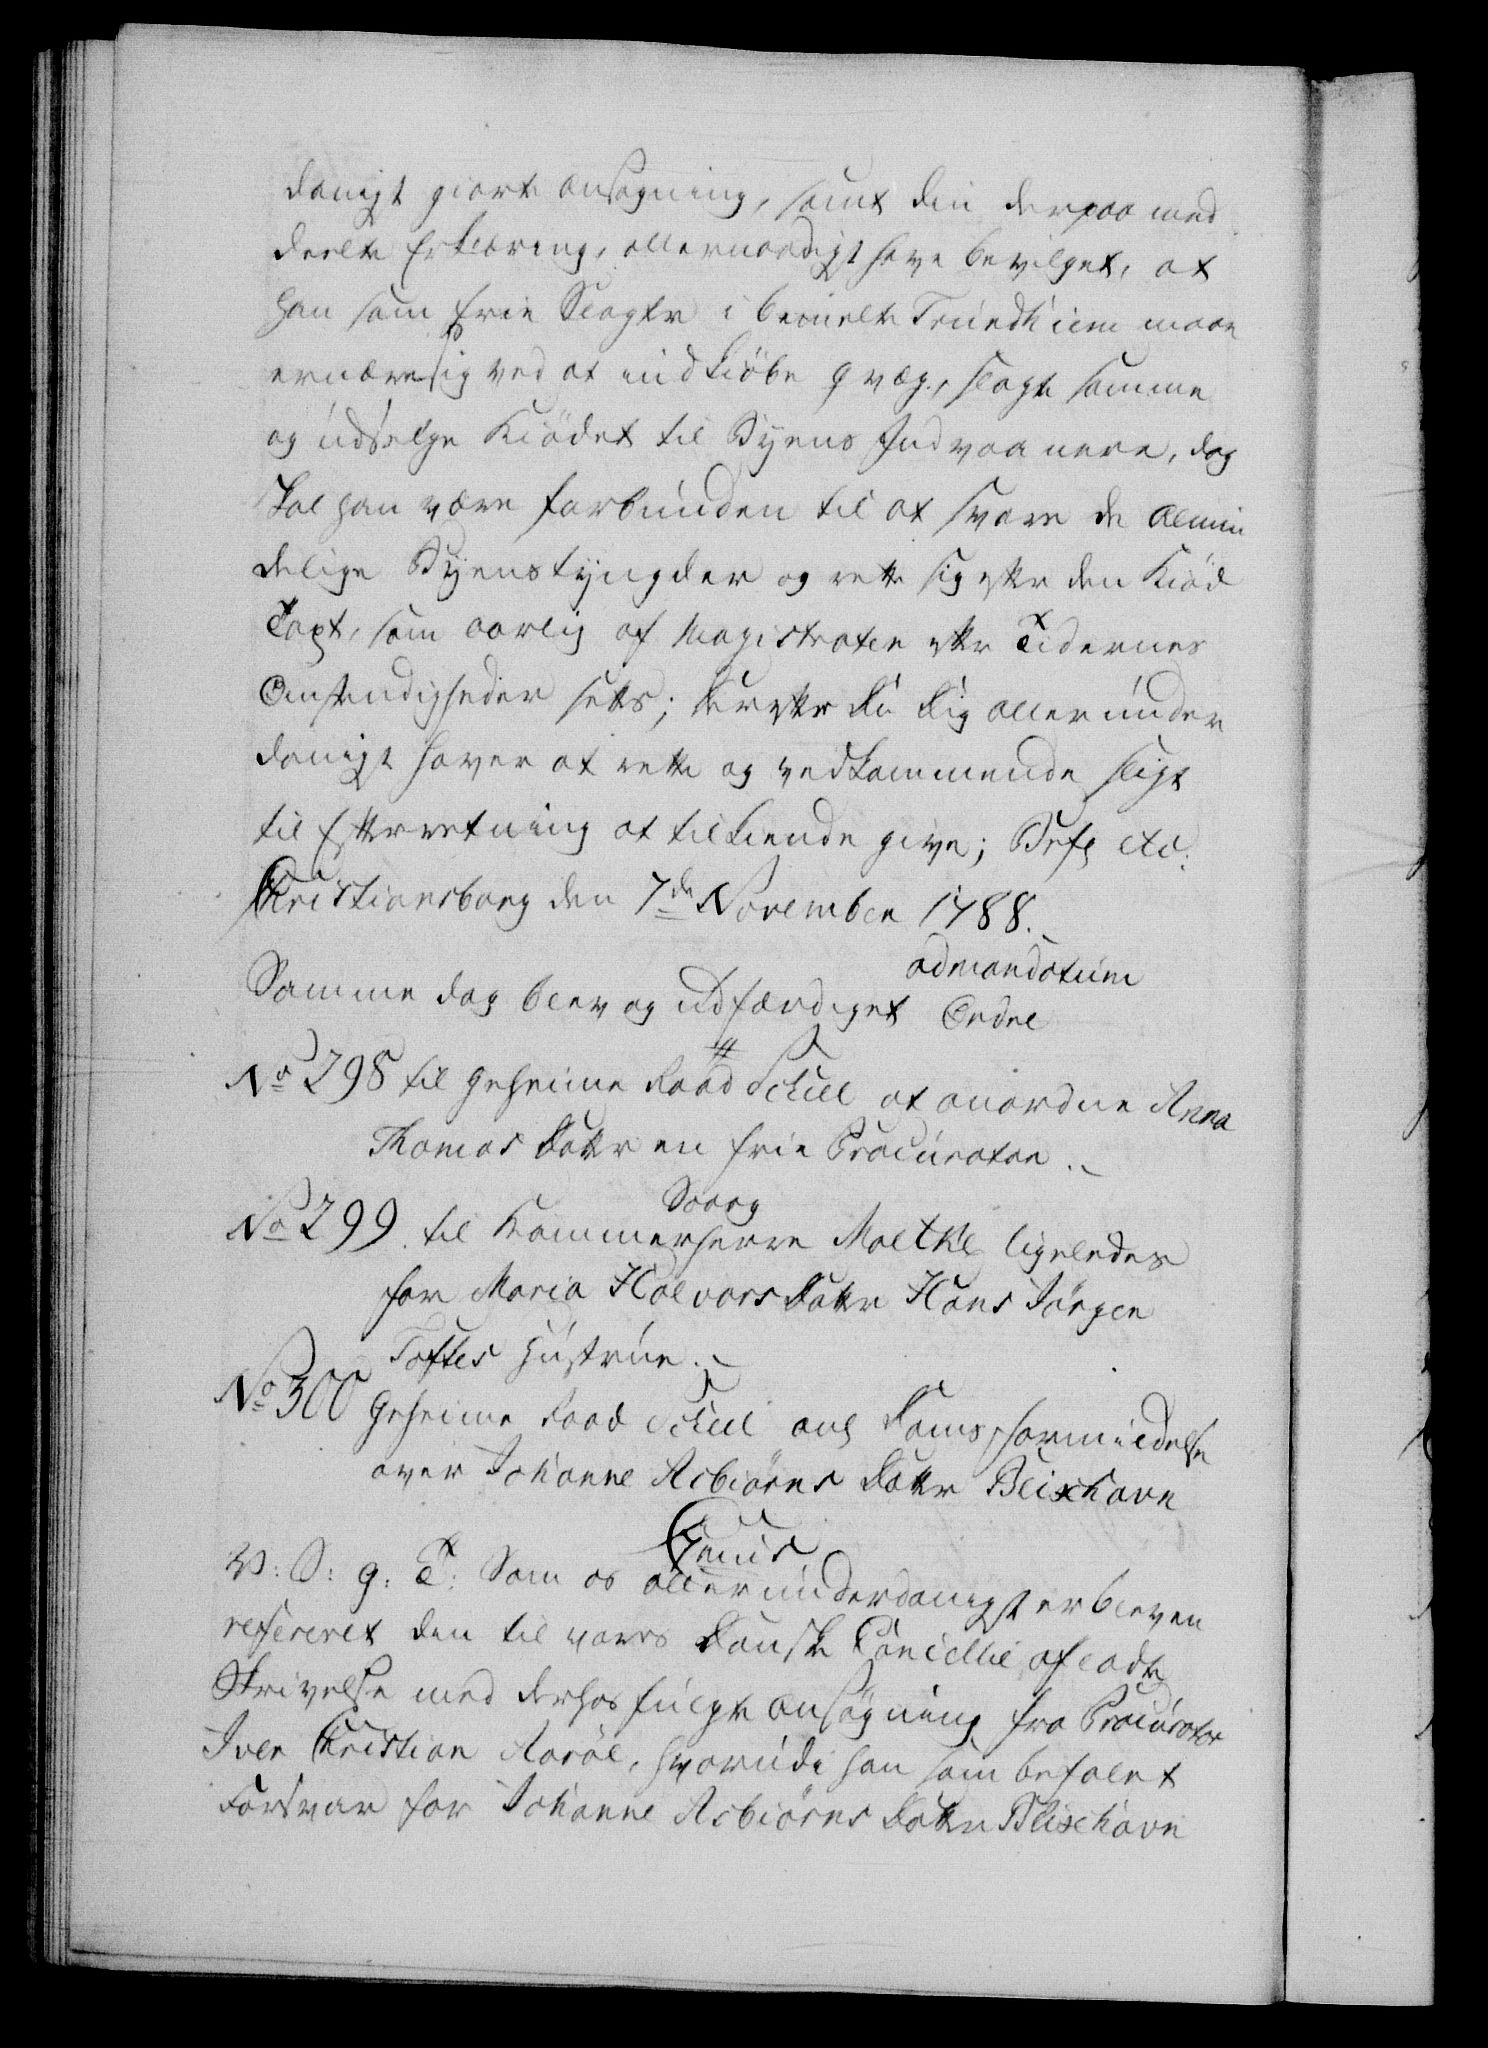 danigt giorte Ansøgning, samt den derpaa med
deelte Erklæring, allernaadigst have bevilget, at
han som frie Slagter i bemelte Trundhiem maae
ernære sig ved at indkiøbe qvæg, slagte samme
og udselge Kiødet til Byens Indvaanere, dog
skal han være forbunden til at svare de almin
delige Byens tyngder og rette sig efter den Kiød
Taxt, som aarlig af Magistraten efter Tidernes
Omstendigheder settes; Derefter du dig allerunder
danigst haver at rette og vedkommende sligt
til Efterretning at tilkiende give; Befs etc:
Christiansborg den 7de November 1788.
admandatum
Samme dag blev og udfærdiget Ordre
No 298 til Geheime Raad Schiel at anordne Anna
Thomas Datter en frie Procurator.
No 299. til Kammerherre Moltke ligeledes
for Maria Halvors Datter Hans Jörgen
Toftes Hustrue.
No 300 Geheime Raad Schiel ang Doms formildelse
over Johanne Asbiörns Datter Blixhavn
V: S: G: T: Som os allerunderdanigst er bleven
refereret den til vores Danske Cancellie afladte
Skrivelse med derhos fulgte Ansøgning fra Procurator
Iver Christian Aaröe, hvorudi han som befalet
Forsvar for Johanne Asbiörns Datter Blixhavn